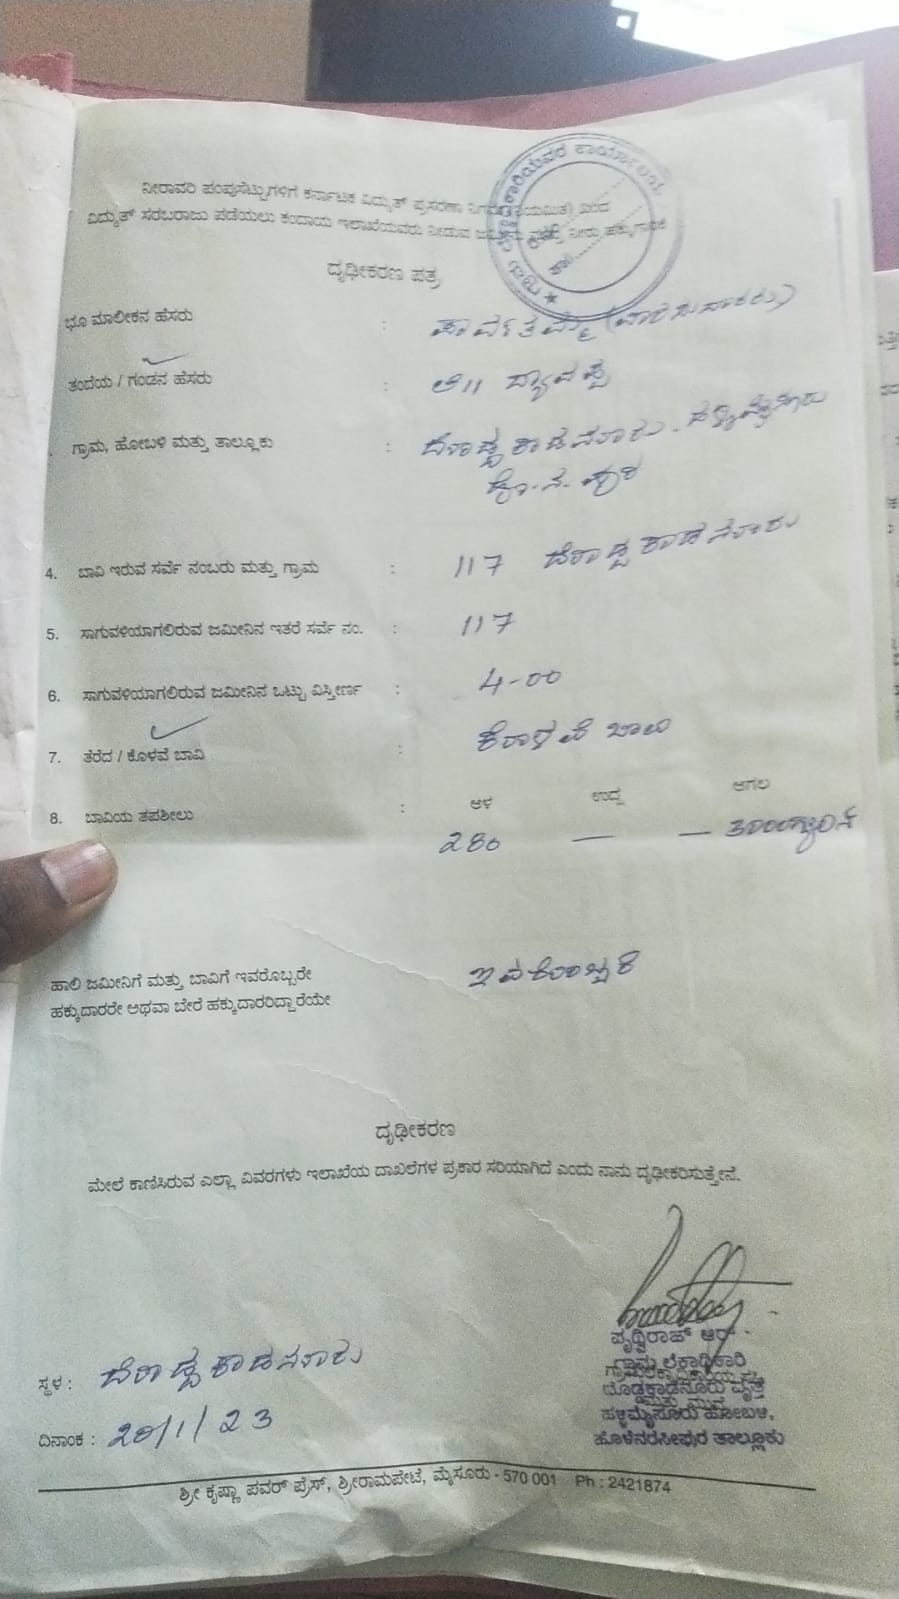 ನೀರಾವರಿ ಪಂಪುಸೆಟ್ಟುಗಳಿಗೆ ಕರ್ನಾಟಕ ವಿದ್ಯುತ್ ಪ್ರಸರಣಾ ನಿಗಮ (ನಿಯಮಿತ) ದಿಂದ
ವಿದ್ಯುತ್ ಸರಬರಾಜು ಪಡೆಯಲು ಕಂದಾಯ ಇಲಾಖೆಯವರು ನೀಡುವ ಜಮೀನು ಮತ್ತು ನೀರು ಹಕ್ಕುಗಾರಿಕೆ
ದೃಢೀಕರಣ ಪತ್ರ
ಭೂ ಮಾಲೀಕನ ಹೆಸರು : ಪಾರ್ವತಮ್ಮ (ವಾರಸುದಾರರು)
ತಂದೆಯ / ಗಂಡನ ಹೆಸರು : ಲೇ|| ದ್ಯಾವಪ್ಪ
ಗ್ರಾಮ, ಹೋಬಳಿ ಮತ್ತು ತಾಲ್ಲೂಕು : ದೊಡ್ಡಕಾಡನೂರು. ಹಳ್ಳಿಮೈಸೂರು
ಹೊ.ನ.ಪುರ
4. ಬಾವಿ ಇರುವ ಸರ್ವೆ ನಂಬರು ಮತ್ತು ಗ್ರಾಮ : 117 ದೊಡ್ಡಕಾಡನೂರು
5. ಸಾಗುವಳಿಯಾಗಲಿರುವ ಜಮೀನಿನ ಇತರೆ ಸರ್ವೆ ನಂ. : 117
6. ಸಾಗುವಳಿಯಾಗಲಿರುವ ಜಮೀನಿನ ಒಟ್ಟು ವಿಸ್ತೀರ್ಣ : 4-00
7. ತೆರೆದ / ಕೊಳವೆ ಬಾವಿ : ಕೊಳವೆ ಬಾವಿ
8. ಬಾವಿಯ ತಪಶೀಲು : ಆಳ ಉದ್ದ ಅಗಲ
280 — —
ಹಾಲಿ ಜಮೀನಿಗೆ ಮತ್ತು ಬಾವಿಗೆ ಇವರೊಬ್ಬರೇ ಇವರೊಬ್ಬರೆ
ಹಕ್ಕುದಾರರೇ ಅಥವಾ ಬೇರೆ ಹಕ್ಕುದಾರರಿದ್ದಾರೆಯೇ
ದೃಢೀಕರಣ
ಮೇಲೆ ಕಾಣಿಸಿರುವ ಎಲ್ಲಾ ವಿವರಗಳು ಇಲಾಖೆಯ ದಾಖಲೆಗಳ ಪ್ರಕಾರ ಸರಿಯಾಗಿದೆ ಎಂದು ನಾನು ದೃಢೀಕರಿಸುತ್ತೇನೆ.
ಪೃಥ್ವಿರಾಜ್ ಆರ್
ಗ್ರಾಮ ಲೆಕ್ಕಾಧಿಕಾರಿ
ದೊಡ್ಡಕಾಡನೂರು ವೃತ್ತ
ಹಳ್ಳಿಮೈಸೂರು ಹೋಬಳಿ,
ಹೊಳೆನರಸೀಪುರ ತಾಲ್ಲೂಕು
ಸ್ಥಳ : ದೊಡ್ಡಕಾಡನೂರು
ದಿನಾಂಕ : 20/1/23
ಶ್ರೀ ಕೃಷ್ಣಾ ಪವರ್ ಪ್ರೆಸ್, ಶ್ರೀರಾಮಪೇಟೆ, ಮೈಸೂರು - 570 001 Ph : 2421874